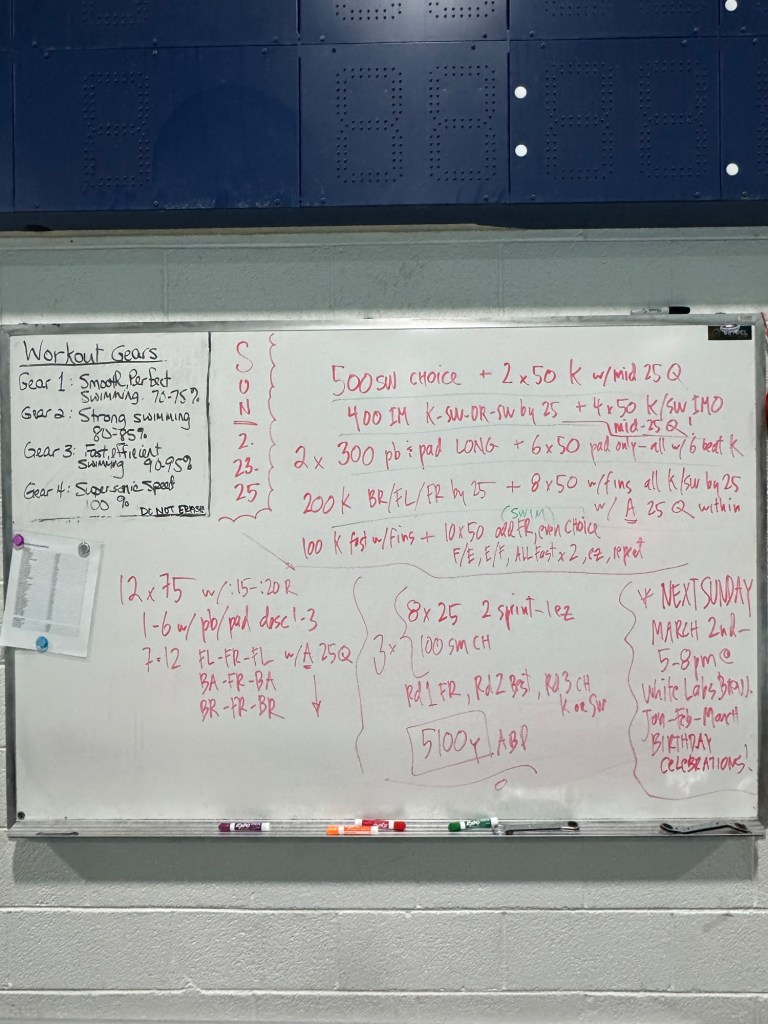 Workout Gears
Gear 1: Smooth, Perfect
SWIMMING 70-75%
Gear 2: Strong SWIMMING
80-85%
Gear 3: Fast, efficient
SWIMMING 90-95%
Gear 4: Supersonic Speed
100 %
DO NOT ERASE
SUN
2.
23.
25
500 SW CHOICE + 2x50 K w/mid 25 Q
400 IM K-SW-DR-SW by 25 + 4x50 K/SW IMO
mid-25 Q!
2x 300 pb & pad LONG + 6x50 pad only-all w/6 beat K
200 K BR/FL/FR by 25 + 8x50 w/fins all K/SW by 25
w/ A 25 Q within
(SWIM)
100 K fast w/fins + 10x50 odd FR, even CHOICE
F/E, E/F, ALL Fast x 2, ez, repeat
12x75 w/:15-:20 R
1-6 w/ pb/pad desc 1-3
7-12 FL-FR-FL w/A 25Q
BA-FR-BA
BR-FR-BR
3x
8x25 2 sprint-1ez
100 sm CH
Rd 1 FR, Rd 2 Bst, Rd 3 CH
K or SW
5100y ABP
* NEXT SUNDAY
MARCH 2nd-
5-8pm @
White Labs
Jan-Feb-March
BIRTHDAY
CELEBRATIONS!